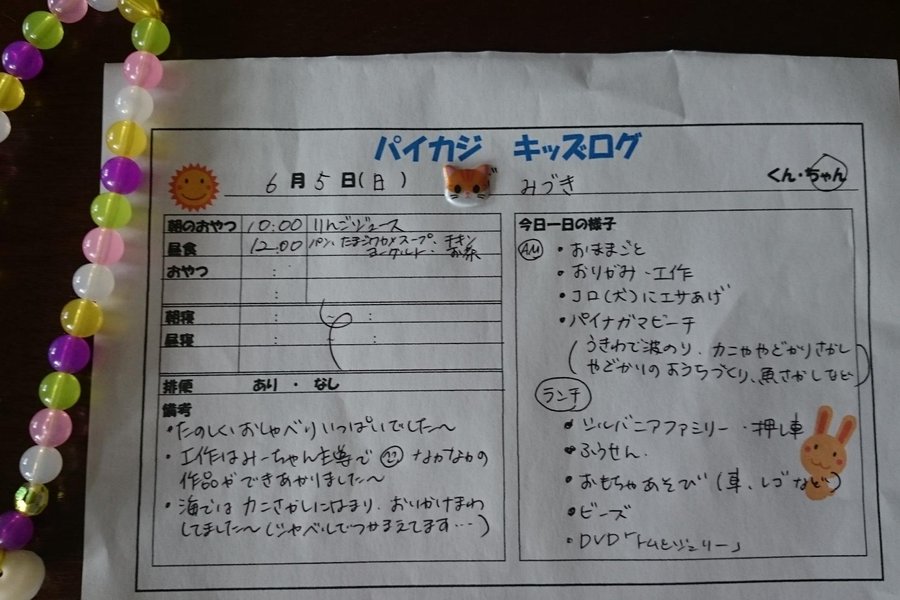 パイカジ キッズログ
6月5日(日) みづき くん・ちゃん
朝のおやつ 10:00 りんごジュース
昼食 12:00 パン、たまごワカメスープ、チキン
ヨーグルト・お茶
おやつ :
:
朝寝 : ~ :
昼寝 : ~ :
:
排便 あり ・ なし
備考
・たのしくおしゃべりいっぱいでした〜
・工作はみーちゃん主導で なかなかの
作品ができあがりました〜
・海では カニさがしにはまり、おいかけまわ
してました〜(シャベルでつかまえてます…)
今日一日の様子
AM ・おままごと
・おりがみ・工作
・コロ(犬)にエサあげ
・パイナガマビーチ
(うきわで波のり、カニややどかりさがし
やどかりのおうちづくり、魚さがしなど)
ランチ
・シルバニアファミリー・押し車
・ふうせん.
・おもちゃあそび(車、レゴなど)
・ビーズ
・DVD「トムとジェリー」